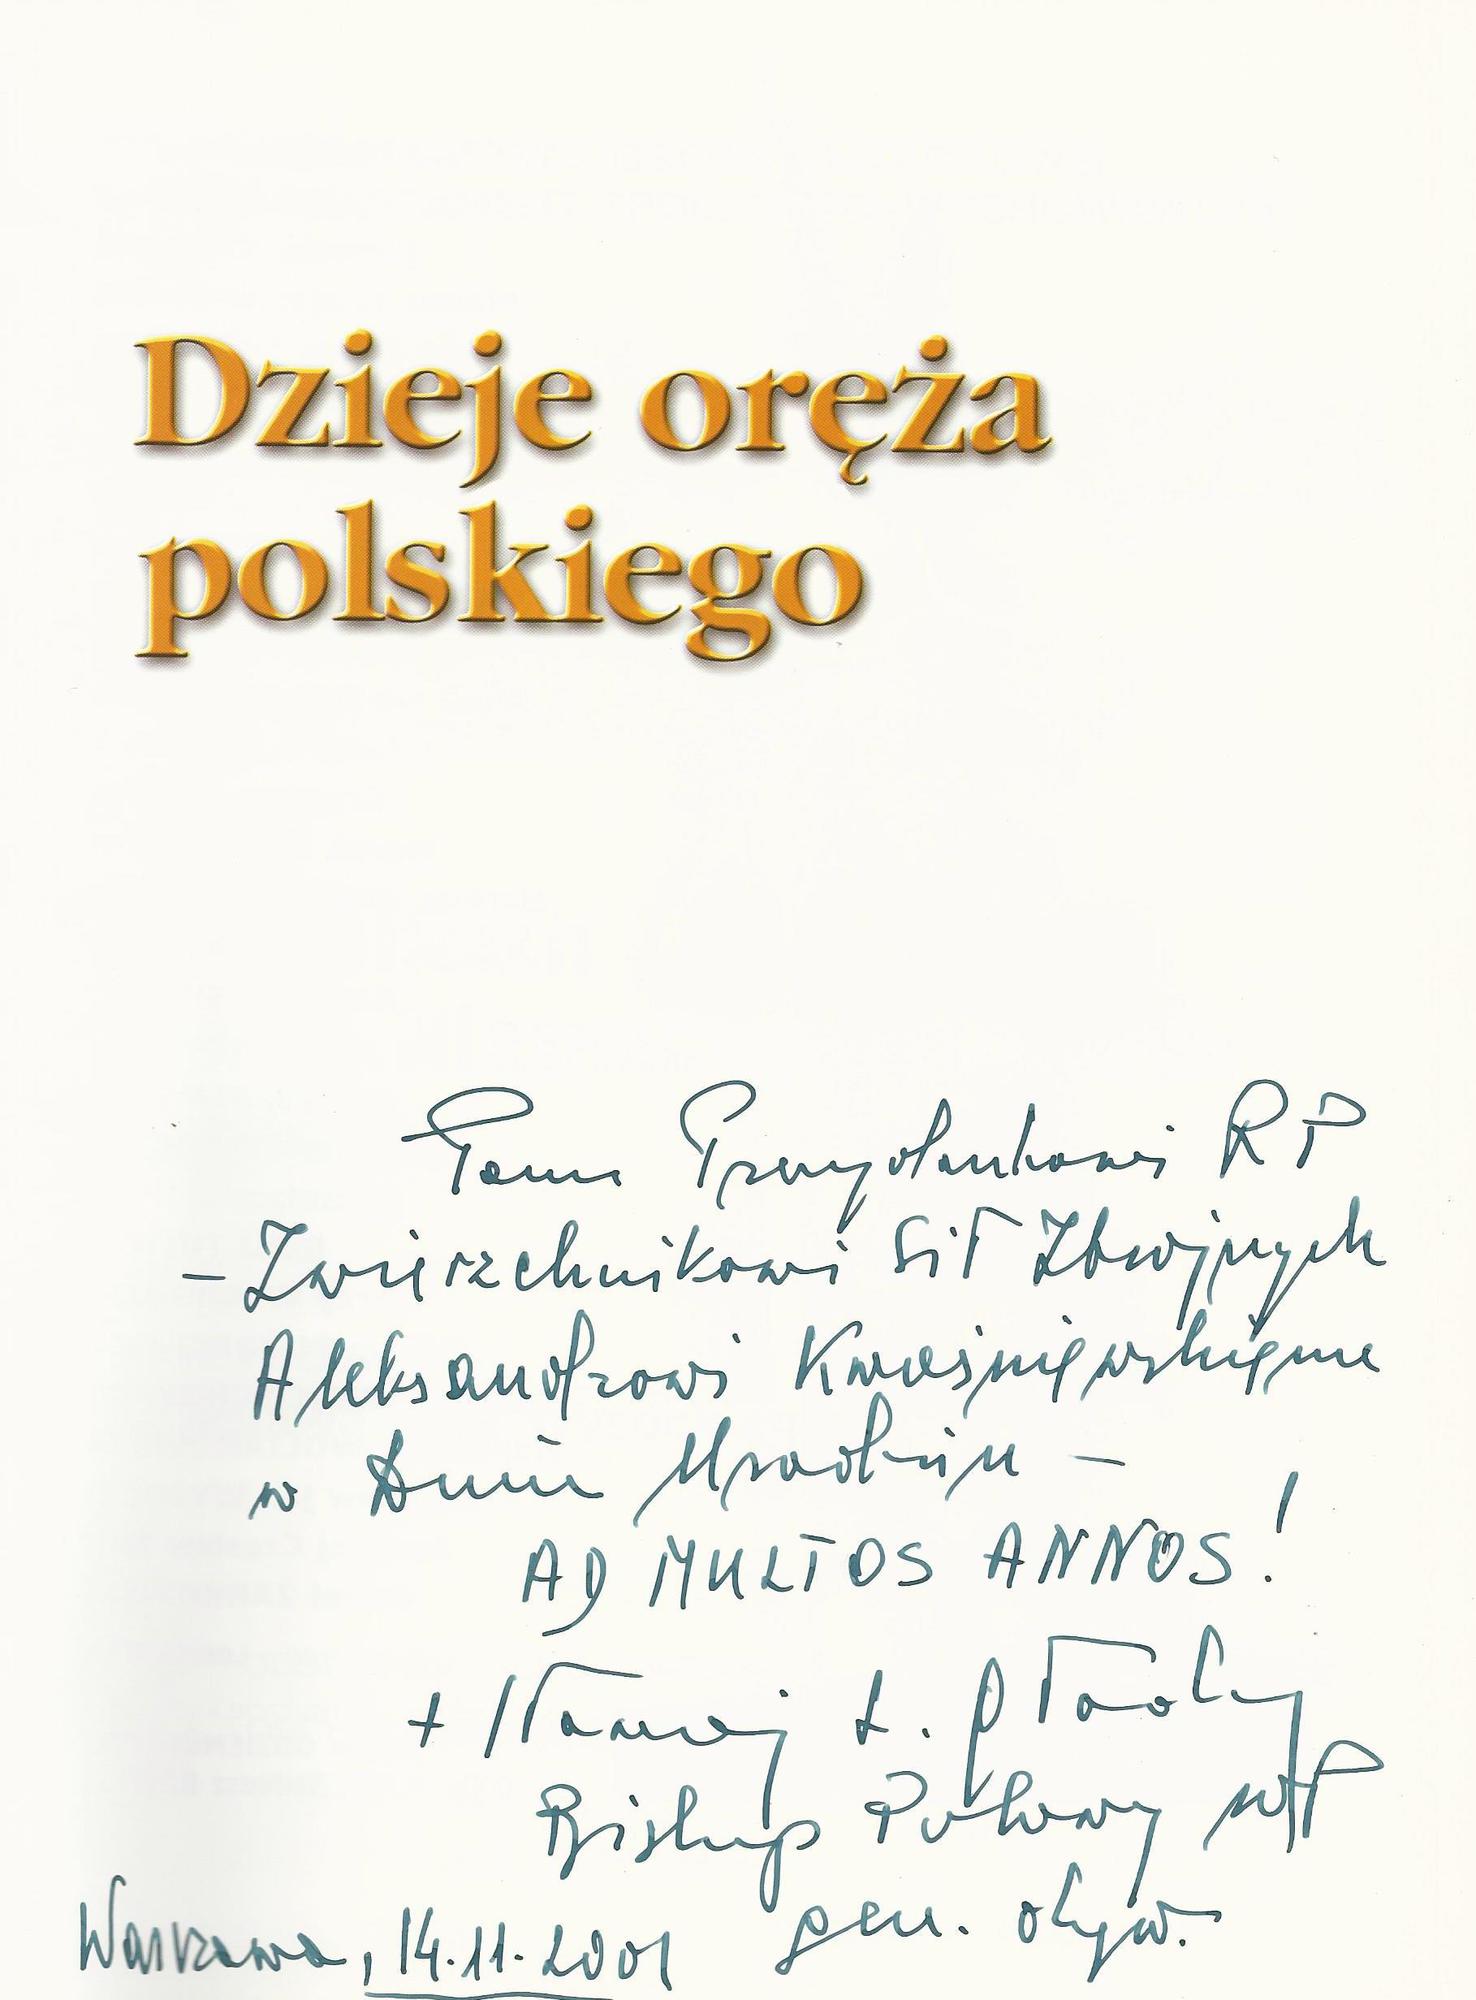 Dzieje oręża
polskiego
Panu Prezydentowi RP
– Zwierzchnikowi Sił Zbrojnych
Aleksandrowi Kwaśniewskiemu
w Dniu Urodzin –
AD MULTOS ANNOS!
+ Sławoj L. Głódź
Biskup Polowy WP
gen. dyw.
Warszawa, 14.11.2001